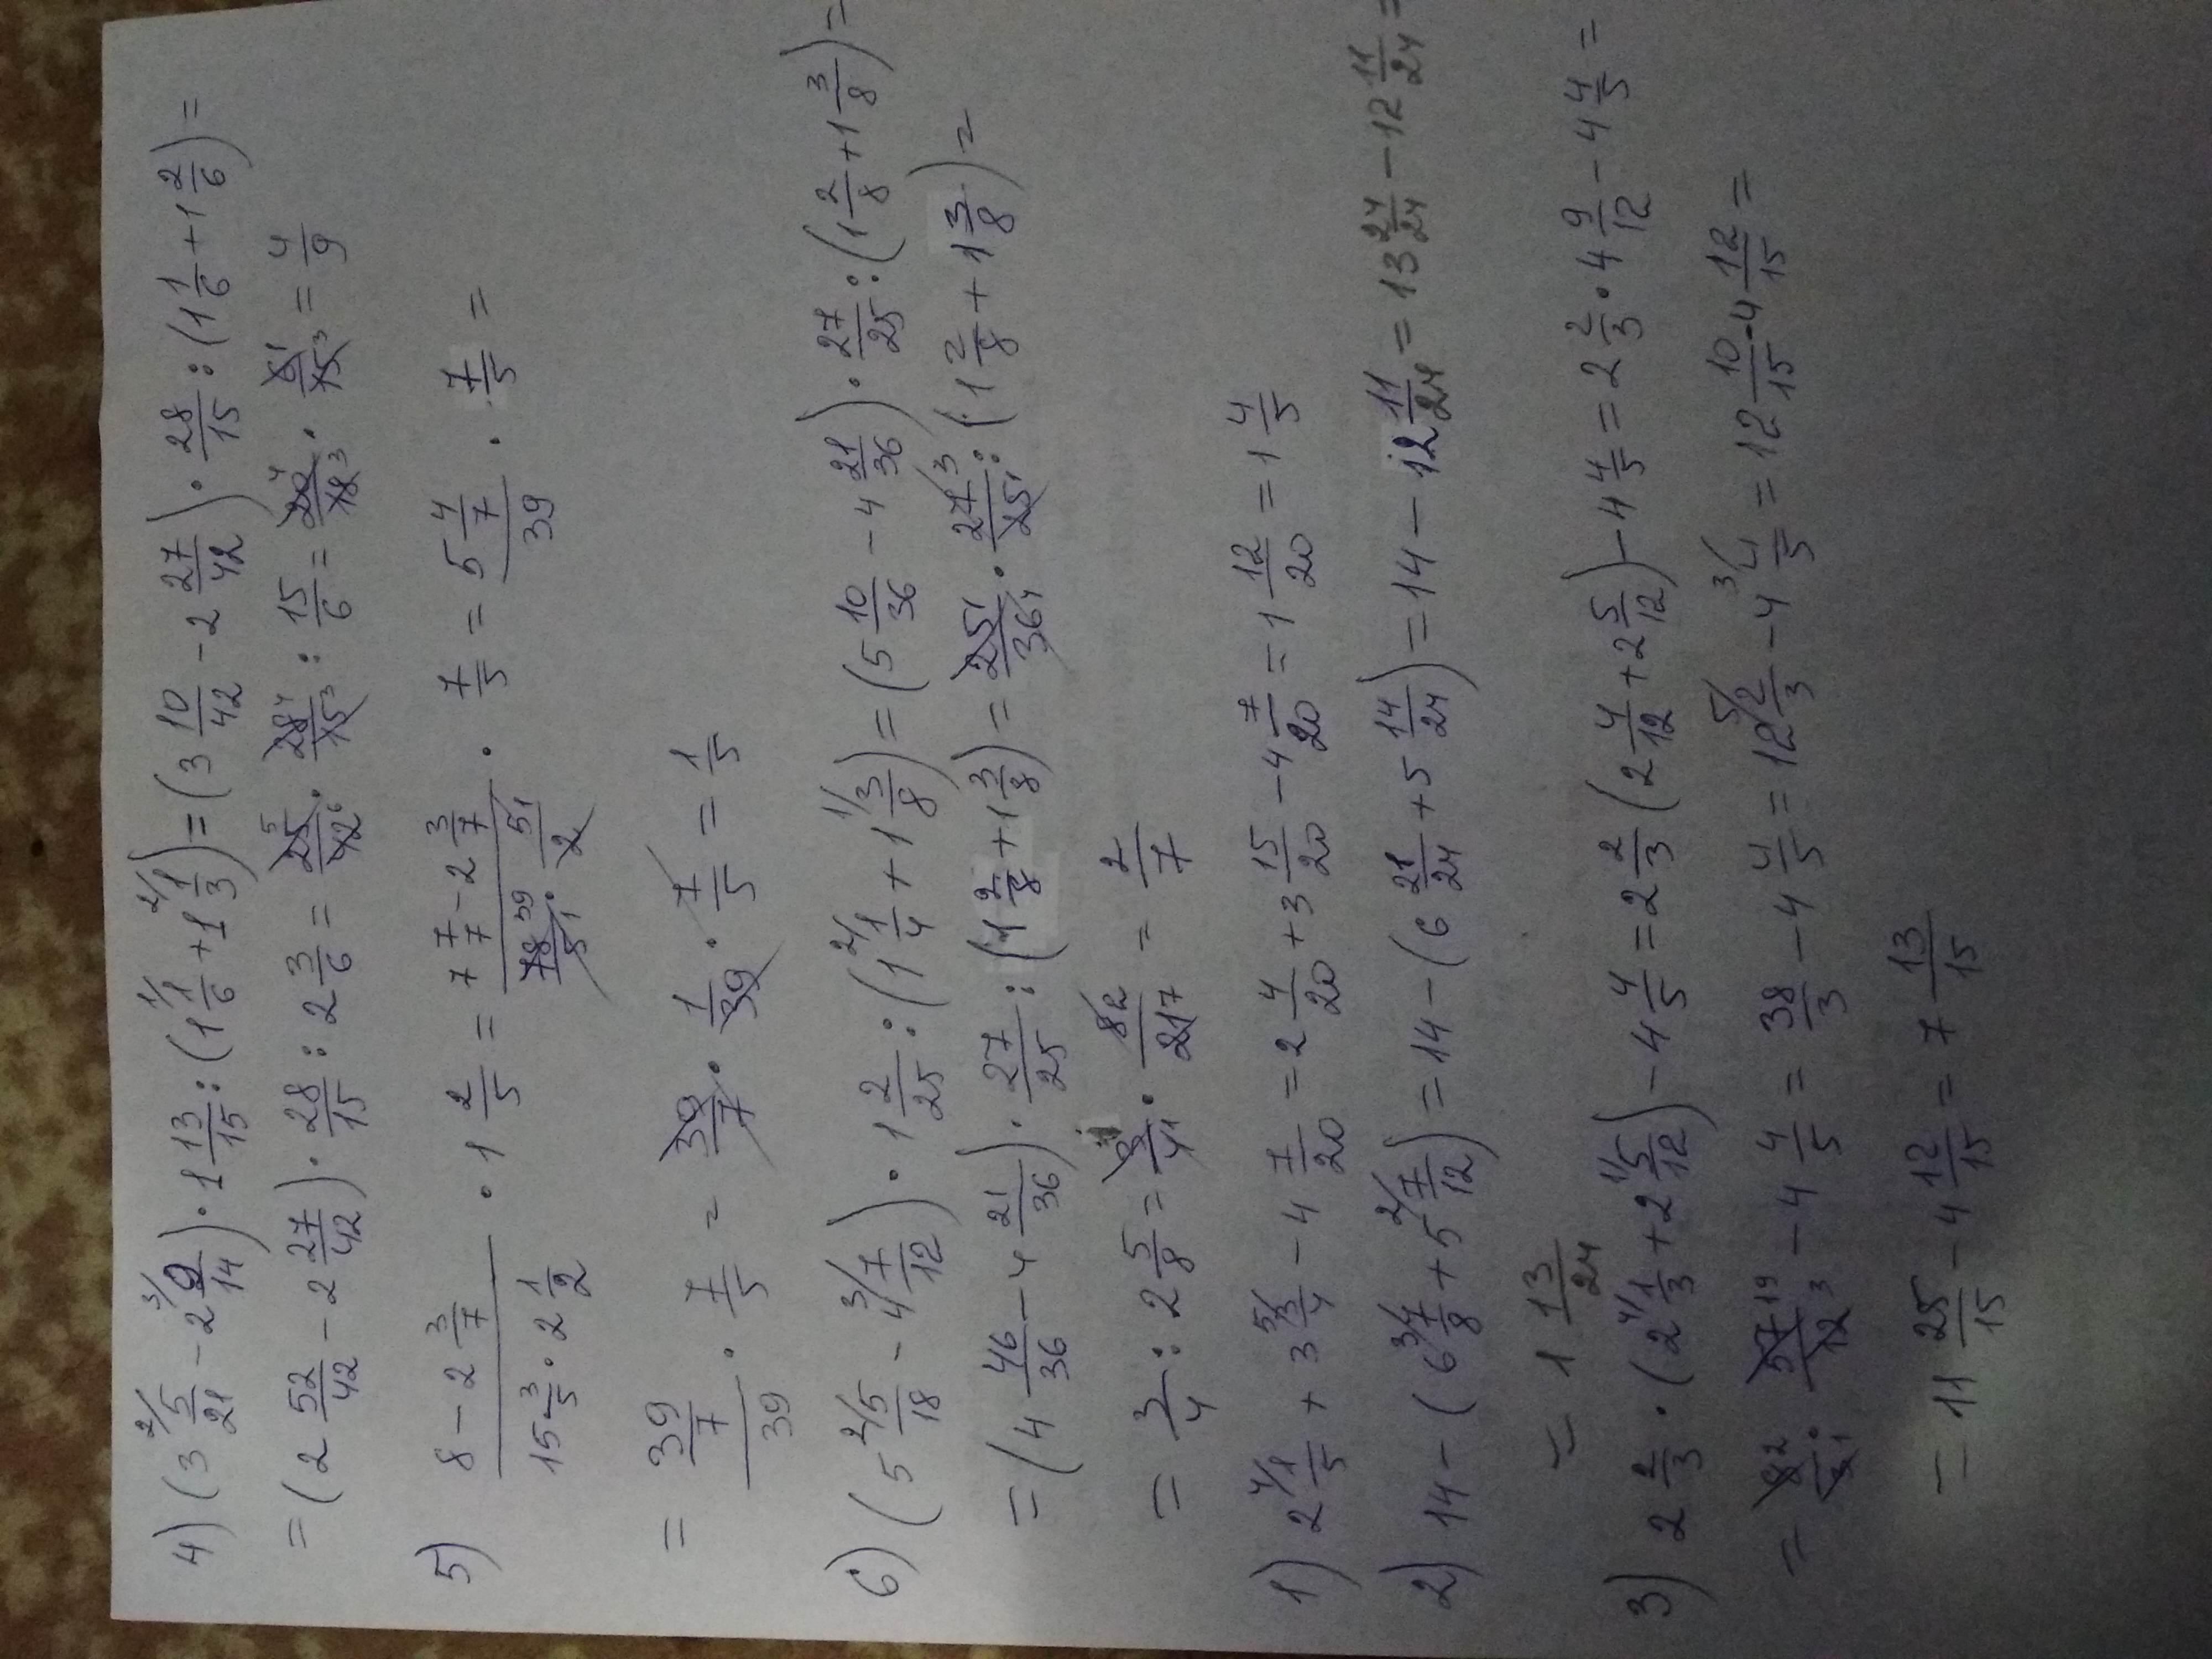 4) (3 5/21 - 2 9/14) · 1 13/15 : (1 1/6 + 1 1/3) = (3 10/42 - 2 27/42) · 28/15 : (1 1/6 + 1 2/6) =
= (2 52/42 - 2 27/42) · 28/15 : 2 3/6 = 25/42 · 28/15 : 15/6 = 20/18 · 6/15 = 4/9
5) (8 - 2 3/7)/(15 3/5 · 2 1/2) · 1 2/5 = (7 7/7 - 2 3/7)/(78/5 · 5/2) · 7/5 = (5 4/7)/39 · 7/5 =
= (39/7)/39 · 7/5 = 39/7 · 1/39 · 7/5 = 1/5
6) (5 5/18 - 4 7/12) · 1 2/25 : (1 1/4 + 1 3/8) = (5 10/36 - 4 21/36) · 27/25 : (1 2/8 + 1 3/8) =
= (4 46/36 - 4 21/36) · 27/25 : (1 2/8 + 1 3/8) = 25/36 · 27/25 : (1 2/8 + 1 3/8) =
= 3/4 : 2 5/8 = 3/4 · 8/21 = 2/7
1) 2 1/5 + 3 3/4 - 4 7/20 = 2 4/20 + 3 15/20 - 4 7/20 = 1 12/20 = 1 4/5
2) 14 - (6 7/8 + 5 7/12) = 14 - (6 21/24 + 5 14/24) = 14 - 12 11/24 = 13 24/24 - 12 11/24 =
= 1 13/24
3) 2 2/3 · (2 1/3 + 2 5/12) - 4 4/5 = 2 2/3 (2 4/12 + 2 5/12) - 4 4/5 = 2 2/3 · 4 9/12 - 4 4/5 =
= 8/3 · 57/12 - 4 4/5 = 38/3 - 4 4/5 = 12 2/3 - 4 4/5 = 12 10/15 - 4 12/15 =
= 11 25/15 - 4 12/15 = 7 13/15